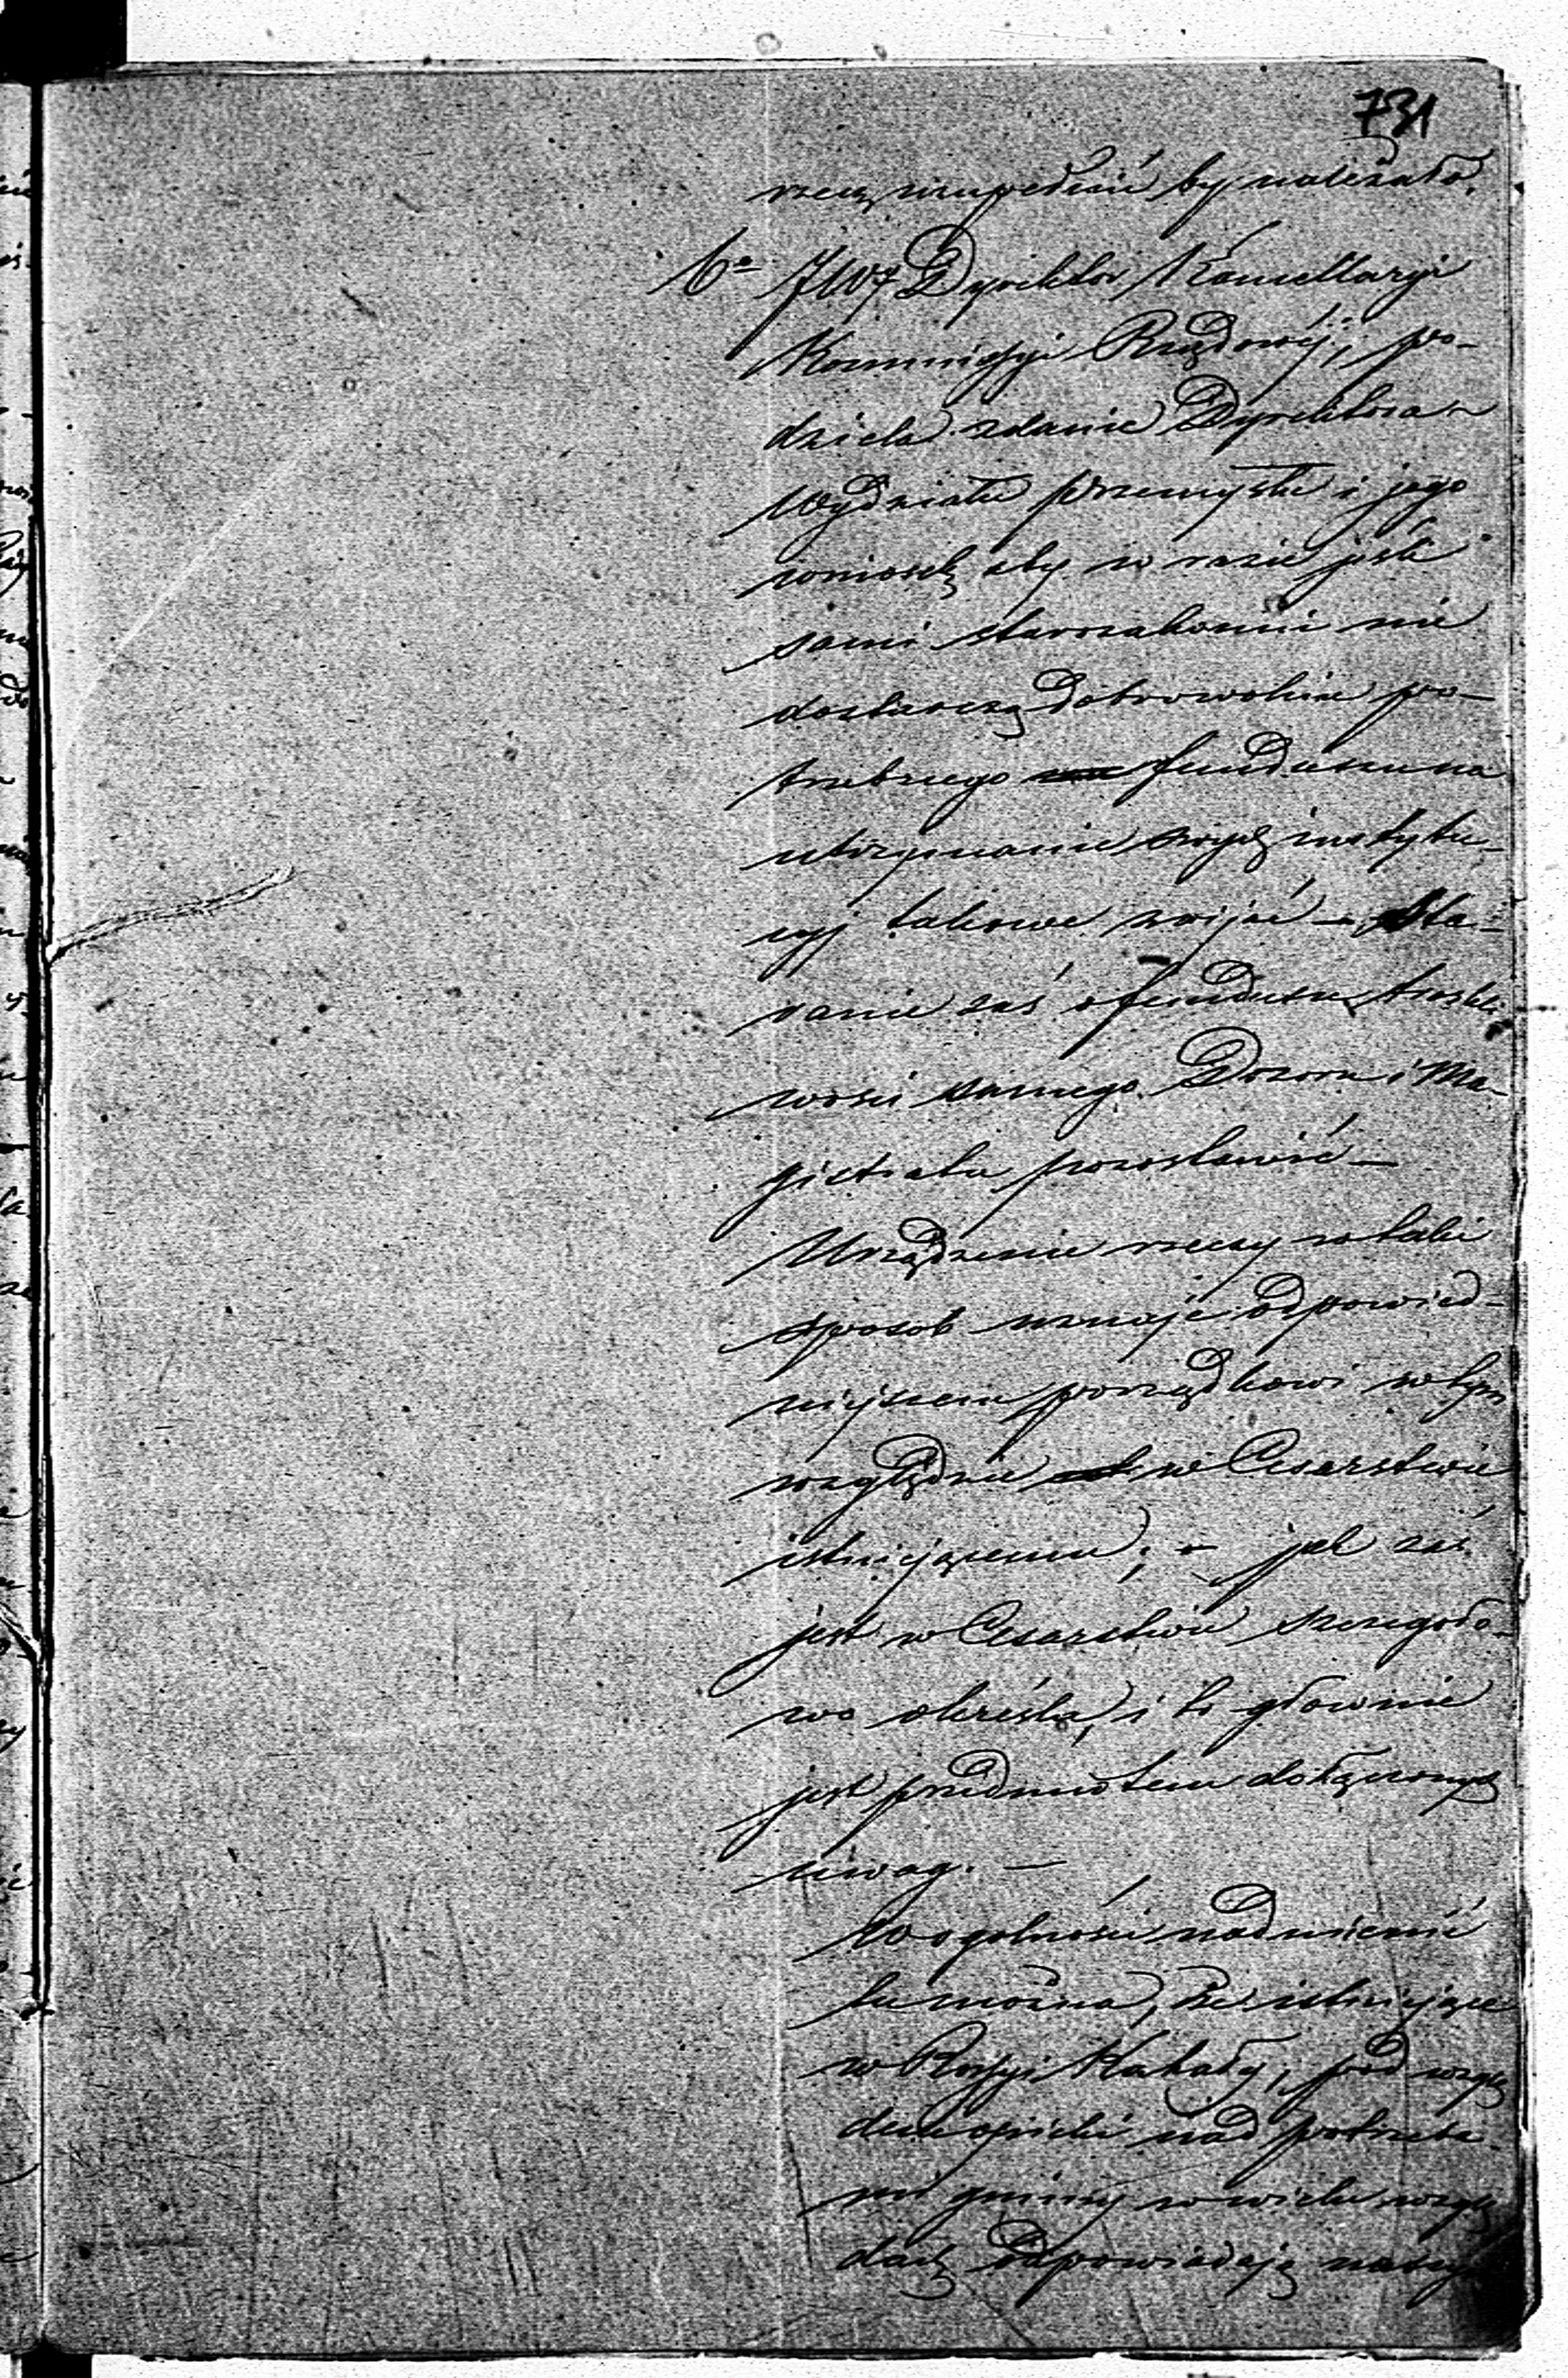 731
rzecz uzupełnić by należało.
6o JWJ Dyrektor Kancellaryi
Kommissyi Rządowéj, po-
dziela zdanie Dyrektora
Wydziału Przemysłu i jego
wniosek aby w razie jeśli
sami starozakonni nie
dostarczą dobrowolnie po-
trzebnego funduszu na
utrzymanie swych instytu-
cyj takowe zwijać – Sta-
ranie zaś o fundusze troskli
wości samego Dozoru i Ma-
gistratu pozostawić –
Urządzenie rzeczy w taki
sposob uznaje odpowied-
niejszem porządkowi w tym
względzie w Cesarstwie
istniejącemu; – jak zaś
jest w Cesarstwie szczegóło-
wo określa, i to głownie
jest przedmiotem dołączonych
uwag. –
W ogolności nadmienić
tu można, że istniejące
w Rossyi Kahały, pod wzglę
dem opieki nad potrzeba-
mi gminy w wielu wzglę
dach odpowiadają naszy